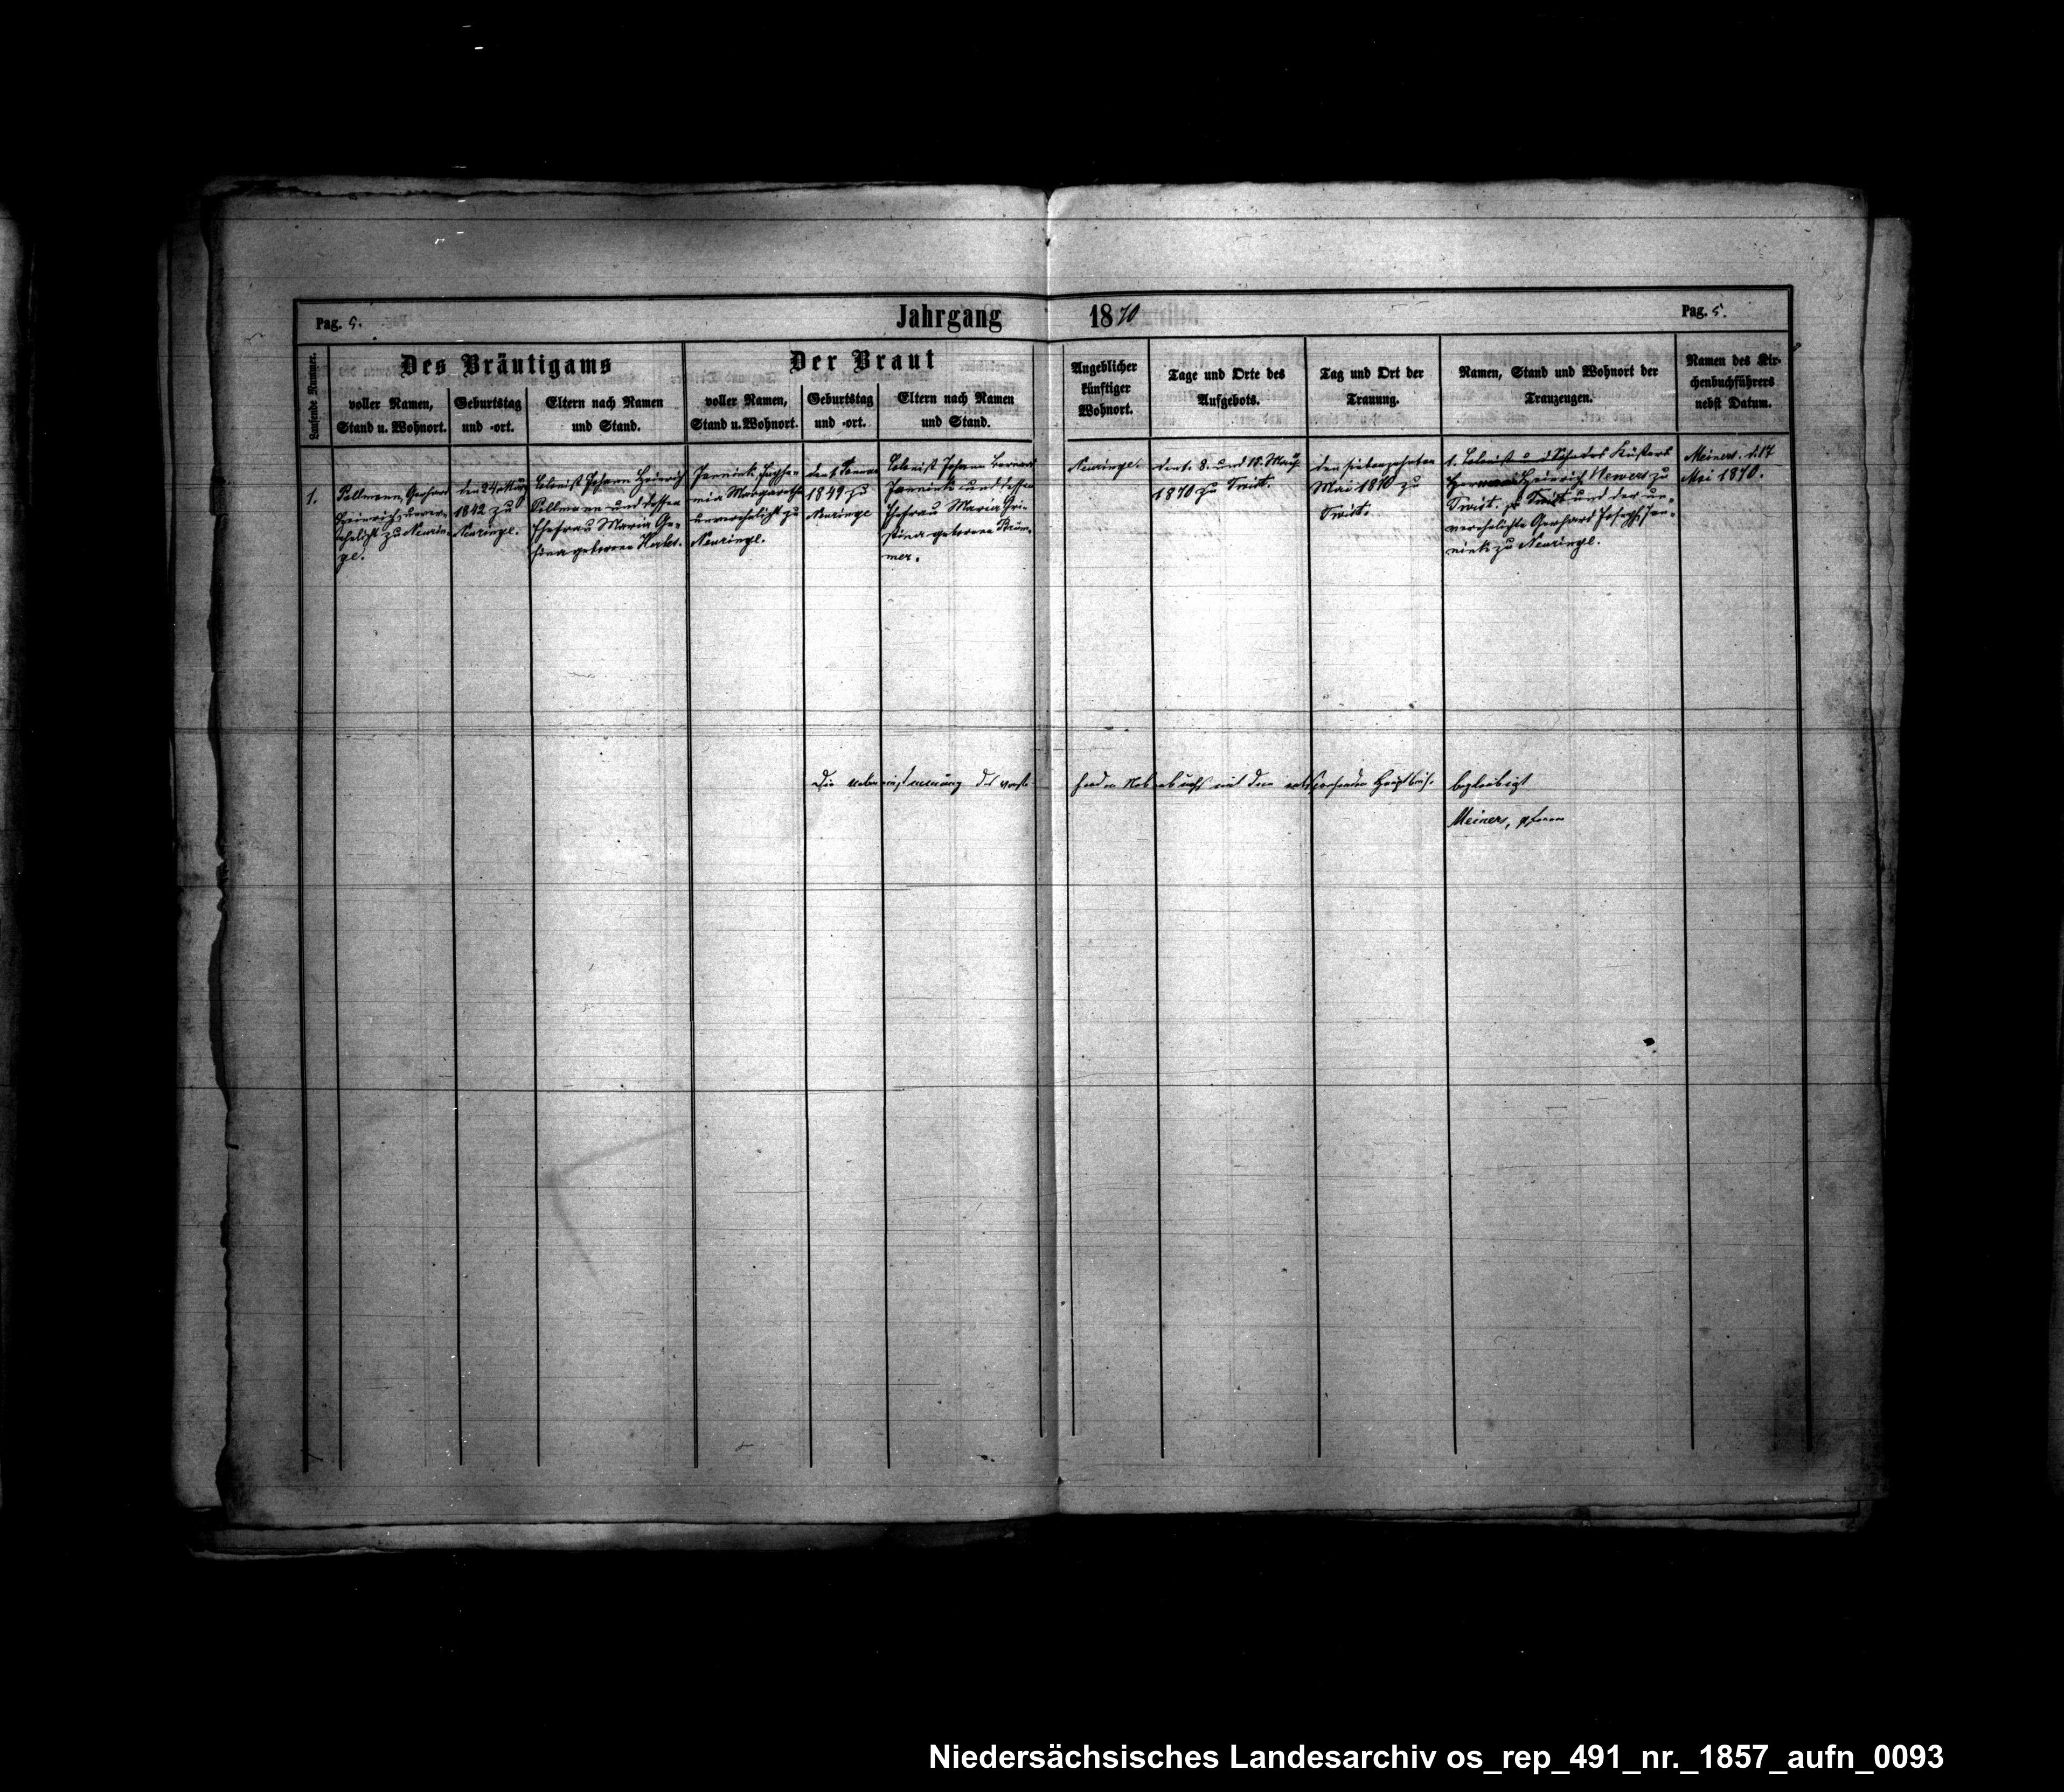 Pag. 5.
Jahrgang 1870
Pag. 5.
Laufende Nummer.
Des Bräutigams
voller Namen,
Stand u. Wohnort.
Geburtstag
und -ort.
Eltern nach Namen
und Stand.
Der Braut
voller Namen,
Stand u. Wohnort.
Geburtstag
und -ort.
Eltern nach Namen
und Stand.
Angeblicher
künftiger
Wohnort.
Tage und Orte des
Aufgebots.
Tag und Ort der
Trauung.
Namen, Stand und Wohnort der
Trauzeugen.
Namen des Kir-
chenbuchführers
nebst Datum.
1.
Gerhard
Heinrich unver-
ehelicht zu Neurin-
ge.
den 24 März
1842 zu
Neuringe.
Colonist Johann Heinrich
und dessen
Ehefrau Maria Ge-
sina geborene
Jannink
Margaretha
unverehelicht zu
Neuringe.
den
1849 zu
Neuringe
Colonist Johann Bernard
Jannink und dessen
Ehefrau Maria
geborene Brüm-
mer.
Neuringe.
8. und 15. Mai
1870 zu Twist.
den siebenzehnten
Mai 1870 zu
Twist.
1. Colonist Küsters
Hermann Heinrich Wewers zu
Twist. zu Twist und der un-
verehelichte Gerhard Joseph Jan-
nink zu Neuringe.
Meiners. d. 17
Mai 1870.
Die Uebereinstimmung des vorste-
henden Nebenbuchs mit dem entsprechenden Hauptbuche
beglaubigt
Meiners, Pfarrer
Niedersächsisches Landesarchiv os_rep_491_nr._1857_aufn_0093